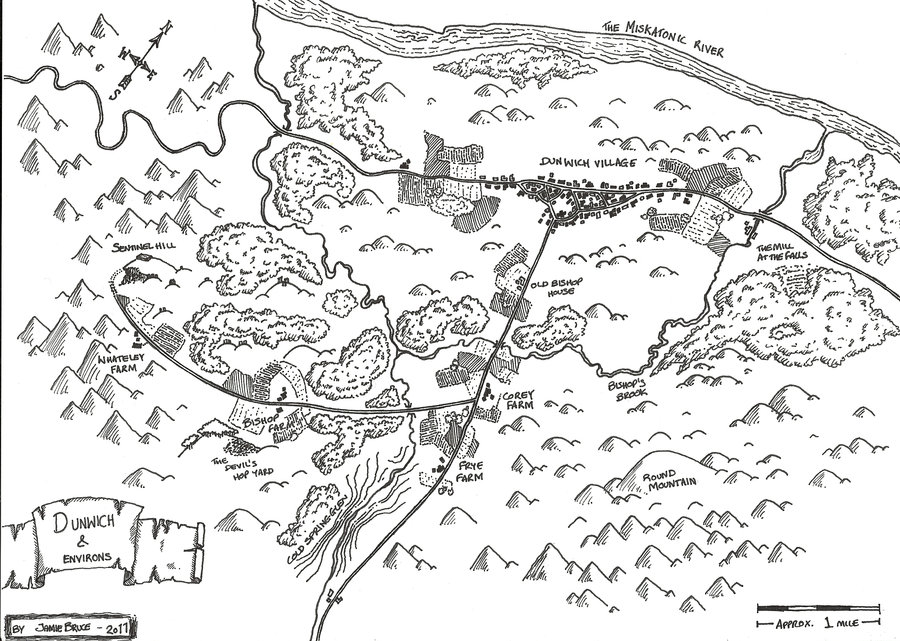 THE MISKATONIC RIVER
N
W
E
S
DUNWICH VILLAGE
SENTINEL HILL
THE MILL
AT THE FALLS
OLD BISHOP
HOUSE
WHATELEY
FARM
BISHOP'S
BROOK
COREY
FARM
BISHOP
FARM
THE
DEVIL'S
HOP YARD
FRYE
FARM
ROUND
MOUNTAIN
COLD SPRING GLEN
DUNWICH
&
ENVIRONS
BY JAMIE BRUCE - 2011
APPROX. 1 MILE